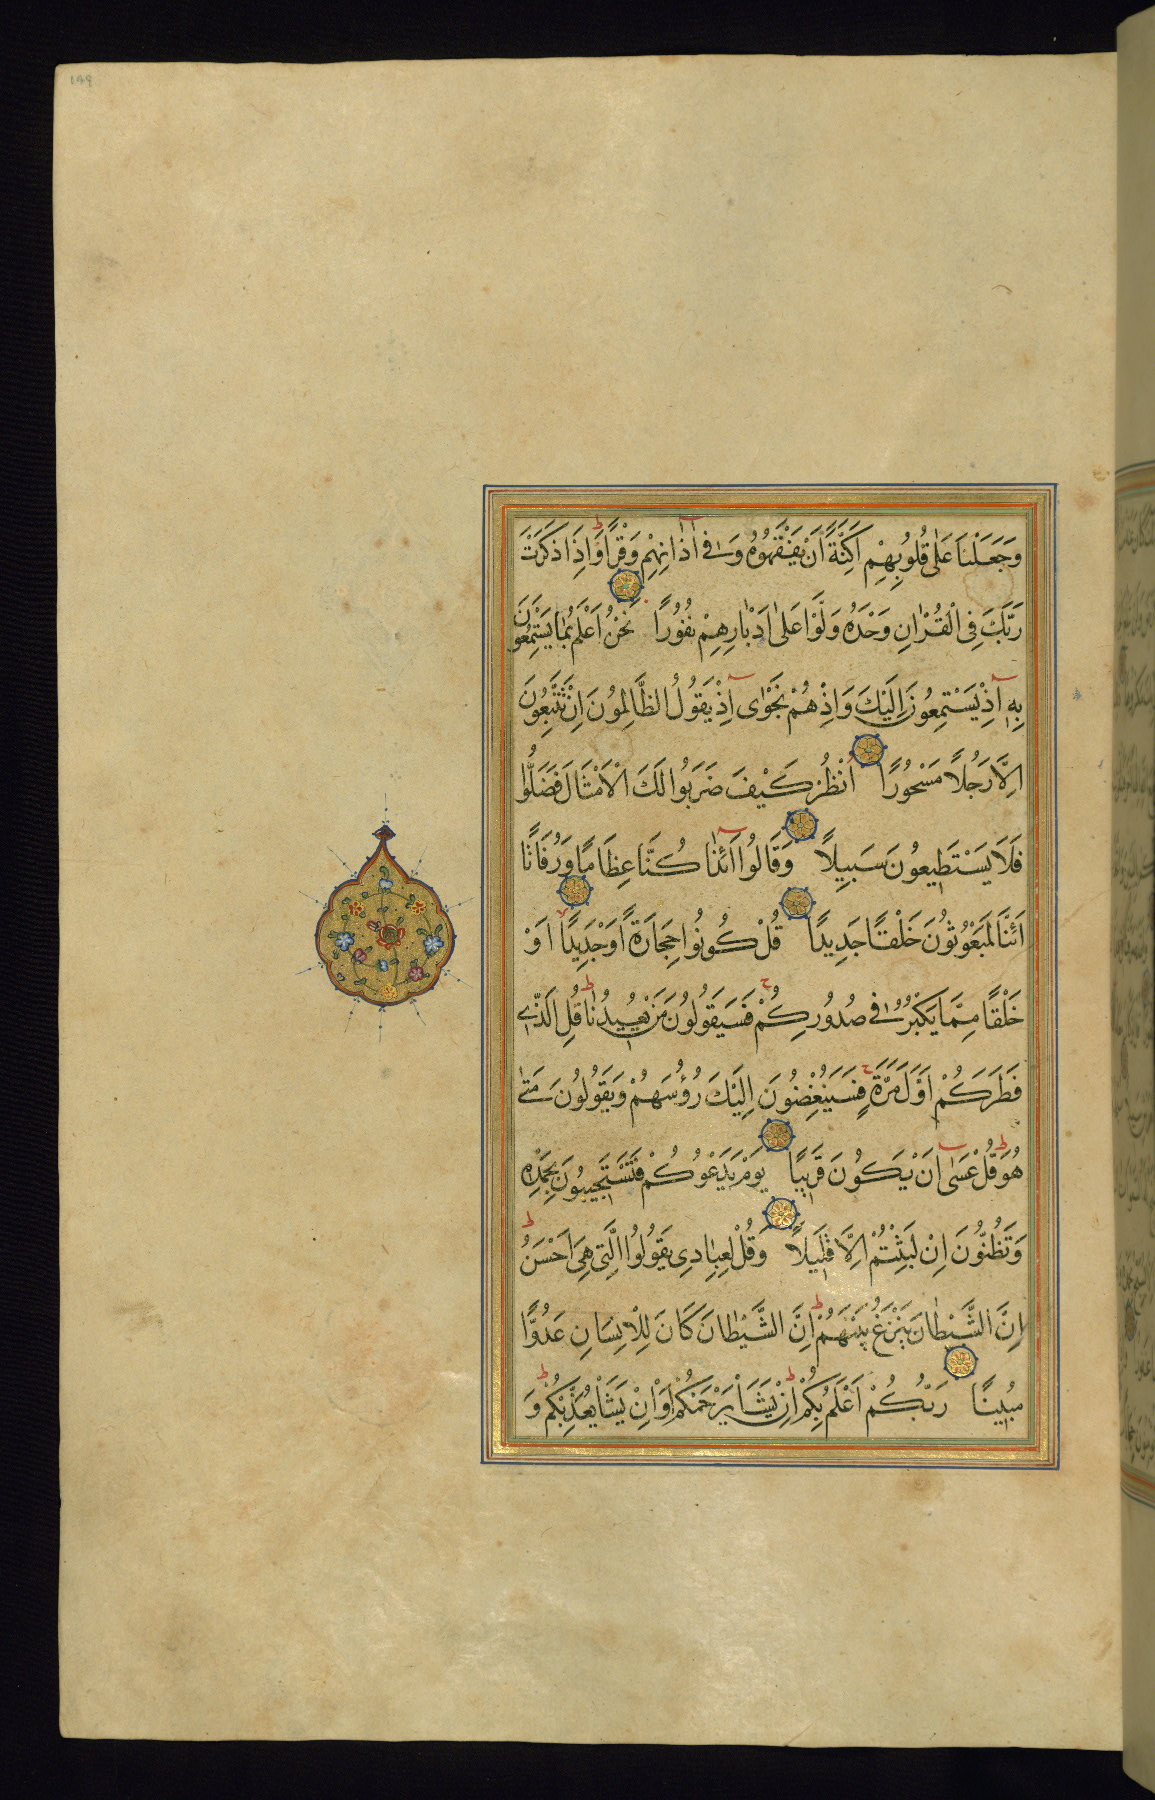 ١٨٩
وَجَعَلْنَا عَلٰى قُلُوبِهِمْ اَكِنَّةً اَنْ يَفْقَهُوهُ وَفٖى اٰذَانِهِمْ وَقْرًا وَاِذَا ذَكَرْتَ
رَبَّكَ فِى الْقُرْاٰنِ وَحْدَهُ وَلَّوْا عَلٰى اَدْبَارِهِمْ نُفُورًا نَحْنُ اَعْلَمُ بِمَا يَسْتَمِعُونَ
بِهٖ اِذْ يَسْتَمِعُونَ اِلَيْكَ وَاِذْ هُمْ نَجْوٰى اِذْ يَقُولُ الظَّالِمُونَ اِنْ تَتَّبِعُونَ
اِلَّا رَجُلًا مَسْحُورًا اُنْظُرْ كَيْفَ ضَرَبُوا لَكَ الْاَمْثَالَ فَضَلُّوا
فَلَا يَسْتَطٖيعُونَ سَبٖيلًا وَقَالُوا اَئِذَا كُنَّا عِظَامًا وَرُفَاتًا
اَئِنَّا لَمَبْعُوثُونَ خَلْقًا جَدٖيدًا قُلْ كُونُوا حِجَارَةً اَوْ حَدٖيدًا اَوْ
خَلْقًا مِمَّا يَكْبُرُ فٖى صُدُورِكُمْ فَسَيَقُولُونَ مَنْ يُعٖيدُنَا قُلِ الَّذٖى
فَطَرَكُمْ اَوَّلَ مَرَّةٍ فَسَيُنْغِضُونَ اِلَيْكَ رُؤُسَهُمْ وَيَقُولُونَ مَتٰى
هُوَ قُلْ عَسٰى اَنْ يَكُونَ قَرٖيبًا يَوْمَ يَدْعُوكُمْ فَتَسْتَجٖيبُونَ بِحَمْدِهٖ
وَتَظُنُّونَ اِنْ لَبِثْتُمْ اِلَّا قَلٖيلًا وَقُلْ لِعِبَادٖى يَقُولُوا الَّتٖى هِىَ اَحْسَنُ
اِنَّ الشَّيْطَانَ يَنْزَغُ بَيْنَهُمْ اِنَّ الشَّيْطَانَ كَانَ لِلْاِنْسَانِ عَدُوًّا
مُبٖينًا رَبُّكُمْ اَعْلَمُ بِكُمْ اِنْ يَشَاْ يَرْحَمْكُمْ اَوْ اِنْ يَشَاْ يُعَذِّبْكُمْ وَ